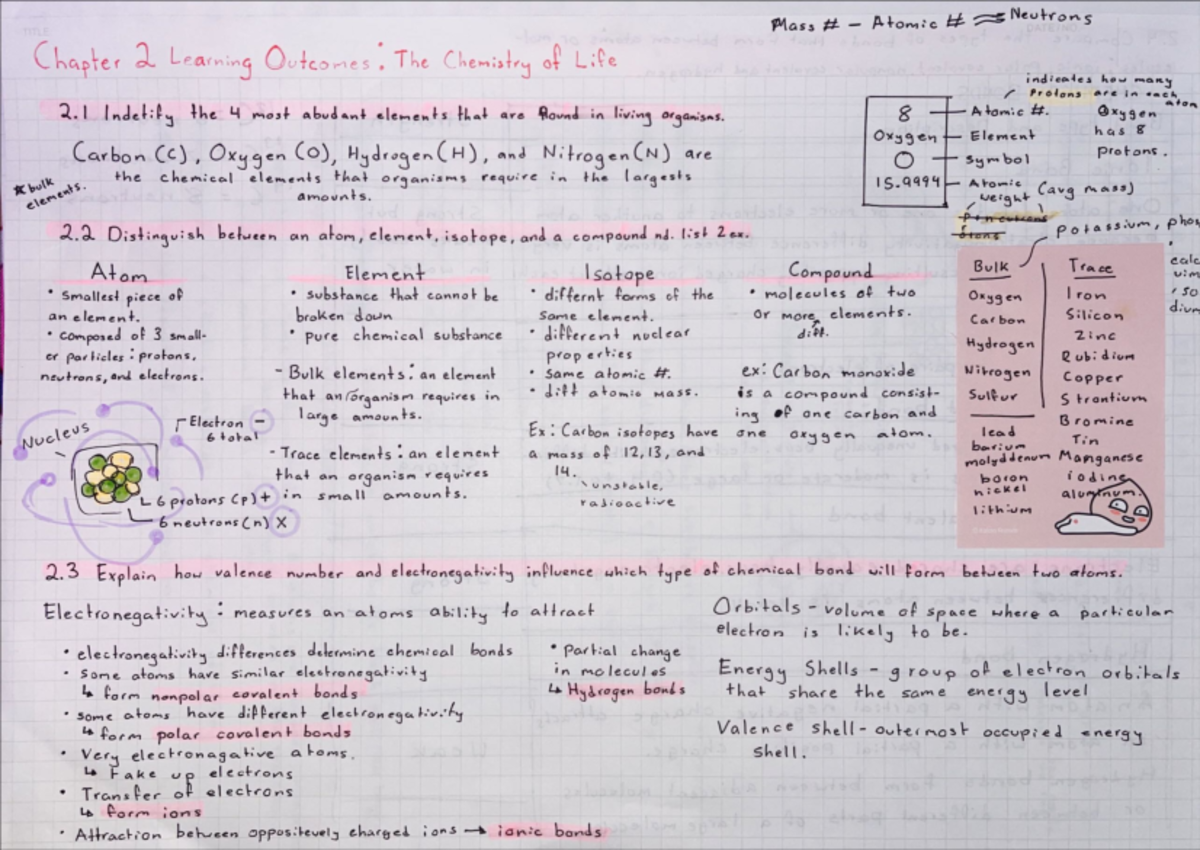 Mass # - Atomic # = Neutrons
Chapter 2 Learning Outcomes: The Chemistry of Life
indicates how many
protons are in each
atom
2.1 Indetify the 4 most abudant elements that are found in living organisms.
8 — Atomic #.
Oxygen — Element
O — symbol
15.9994 — Atomic weight (avg mass)
Oxygen
has 8
protons.
Carbon (C), Oxygen (O), Hydrogen (H), and Nitrogen (N) are
the chemical elements that organisms require in the largests
amounts.
* bulk
elements.
2.2 Distinguish between an atom, element, isotope, and a compound nd. list 2 ex.
Atom
• smallest piece of
an element.
• composed of 3 small-
er particles: protons,
neutrons, and electrons.
Nucleus
Electron -
6 total
6 protons (p) +
6 neutrons (n) X
Element
• substance that cannot be
broken down
• pure chemical substance
- Bulk elements: an element
that an organism requires in
large amounts.
- Trace elements: an element
that an organism requires
in small amounts.
Isotope
• differnt forms of the
same element.
• different nuclear
properties
• same atomic #.
• diff atomic mass.
Ex: Carbon isotopes have
a mass of 12, 13, and
14.
unstable,
radioactive
Compound
• molecules of two
or more elements.
diff.
ex: Carbon monoxide
is a compound consist-
ing of one carbon and
one oxygen atom.
potassium, phos
calc
ium
, so
dium
Bulk
Oxygen
Carbon
Hydrogen
Nitrogen
Sulfur
lead
barium
molyddenum
boron
nickel
lithium
Trace
Iron
Silicon
Zinc
Rubidium
Copper
Strontium
Bromine
Tin
Manganese
iodine
aluminum.
2.3 Explain how valence number and electronegativity influence which type of chemical bond will form between two atoms.
Electronegativity: measures an atoms ability to attract
• electronegativity differences determine chemical bonds
• Some atoms have similar electronegativity
↳ form nonpolar covalent bonds
• some atoms have different electronegativity
↳ form polar covalent bonds
• Very electronagative atoms.
↳ take up electrons
• Transfer of electrons
↳ form ions
• Attraction between oppositevely charged ions → ionic bonds
• Partial change
in molecules
↳ Hydrogen bonds
Orbitals - volume of space where a particular
electron is likely to be.
Energy Shells - group of electron orbitals
that share the same energy level
Valence shell - outermost occupied energy
shell.